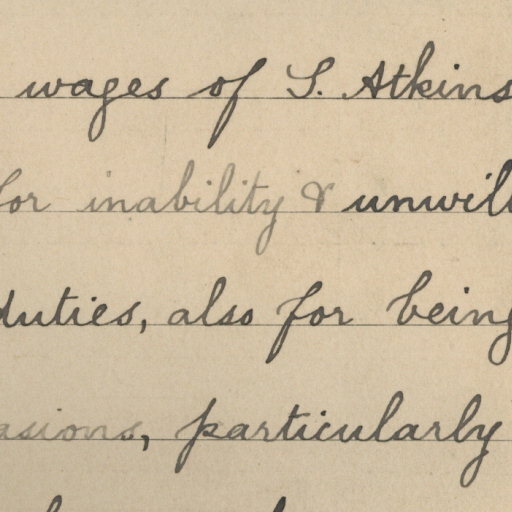 wages of S. Atkins
for inability & unwill
duties, also for being
asions, particularly